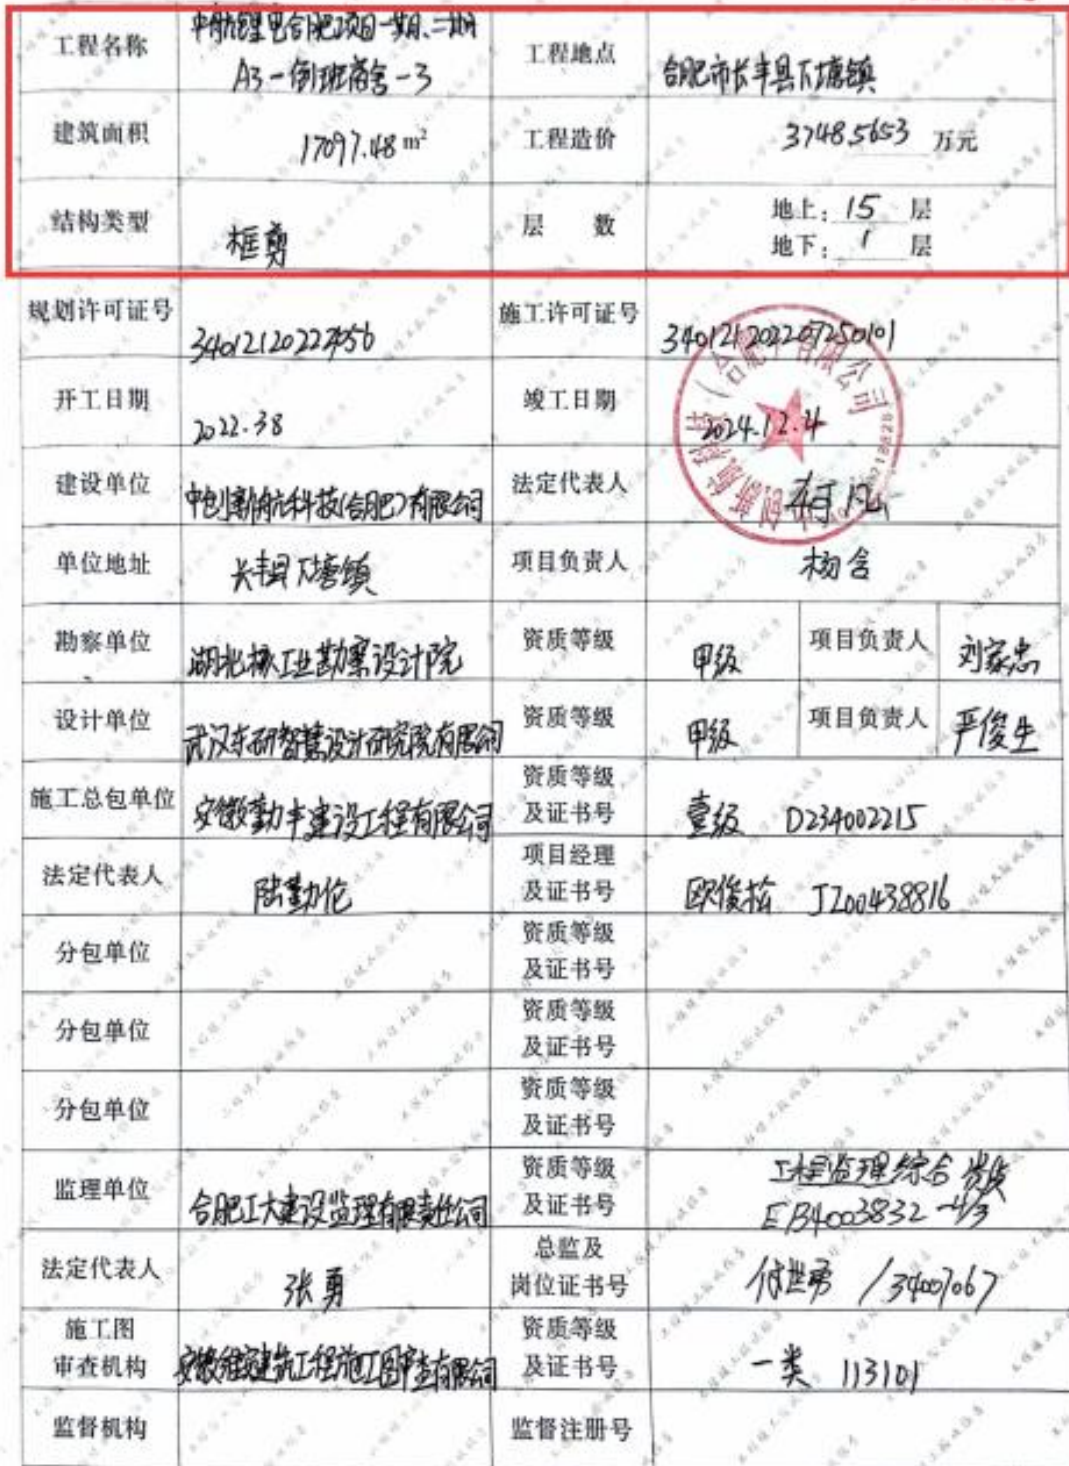 工程名称 中航锂电合肥项目一期、二期 工程地点 合肥市长丰县下塘镇
A3-倒班宿舍-3
建筑面积 17097.48 m² 工程造价 3748.5653 万元
结构类型 框剪 层 数 地上：15 层
地下：1 层
规划许可证号 施工许可证号 340121202207250101
开工日期 2022.38 竣工日期 2024.12.4
建设单位 中创新航科技(合肥)有限公司 法定代表人
单位地址 长丰县下塘镇 项目负责人 杨含
勘察单位 湖北核工业勘察设计院 资质等级 甲级 项目负责人 刘家忠
设计单位 武汉东研智慧设计研究院有限公司 资质等级 甲级 项目负责人 严俊生
施工总包单位 安徽勤丰建设工程有限公司 资质等级
及证书号 壹级 D234002215
法定代表人 陆勤伦 项目经理
及证书号 欧俊松 JZ00438816
分包单位 资质等级
及证书号
分包单位 资质等级
及证书号
分包单位 资质等级
及证书号
监理单位 合肥工大建设监理有限责任公司 资质等级 工程监理综合资质
及证书号
法定代表人 张勇 总监及
岗位证书号 付世勇 /34007067
施工图 资质等级
审查机构 及证书号 一类 113101
监督机构 监督注册号